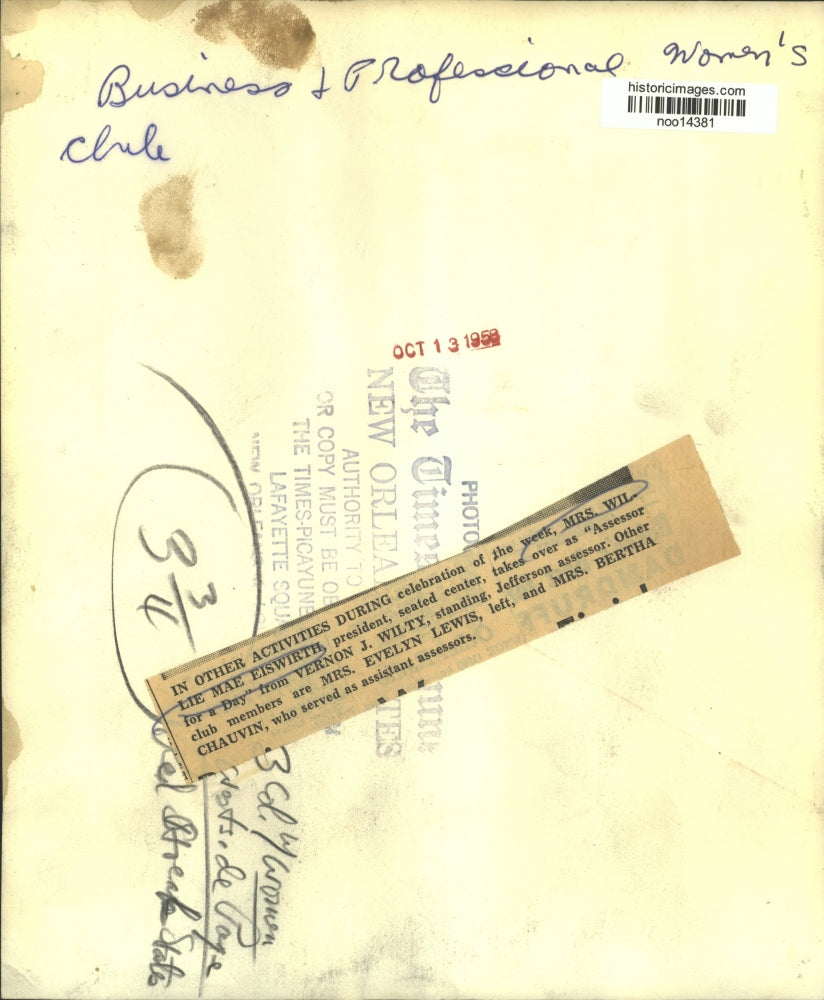 Business & Professional Women's
Club
historicimages.com
noo14381
OCT 13 1959
PHOTO
The Times
NEW ORLEA
TES
AUTHORITY TO
OR COPY MUST BE OB
THE TIMES-PICAYUNE
LAFAYETTE SQU
NEW ORLEA
3 3/4
IN OTHER ACTIVITIES DURING celebration of the week, MRS. WIL-
LIE MAE EISWIRTH, president, seated center, takes over as "Assessor
for a Day" from VERNON J. WILTY, standing, Jefferson assessor. Other
club members are MRS. EVELYN LEWIS, left, and MRS. BERTHA
CHAUVIN, who served as assistant assessors.
3 Col. W Women
Page
States